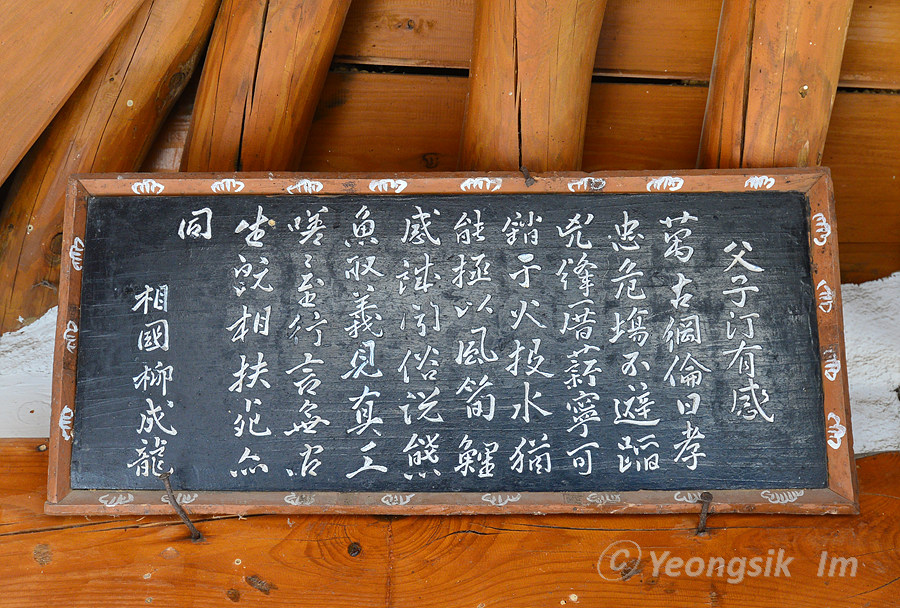 父子汀有感
萬古綱倫曰孝
忠危塲不避蹈
兇鋒厝薪寧可
銷于火投水猶
能拯以風筍鯉
感誠聞俗說熊
魚取義見真工
嗟〻至行言無
生旣相扶死亦
同
相國柳成龍
© Yeongsik Im